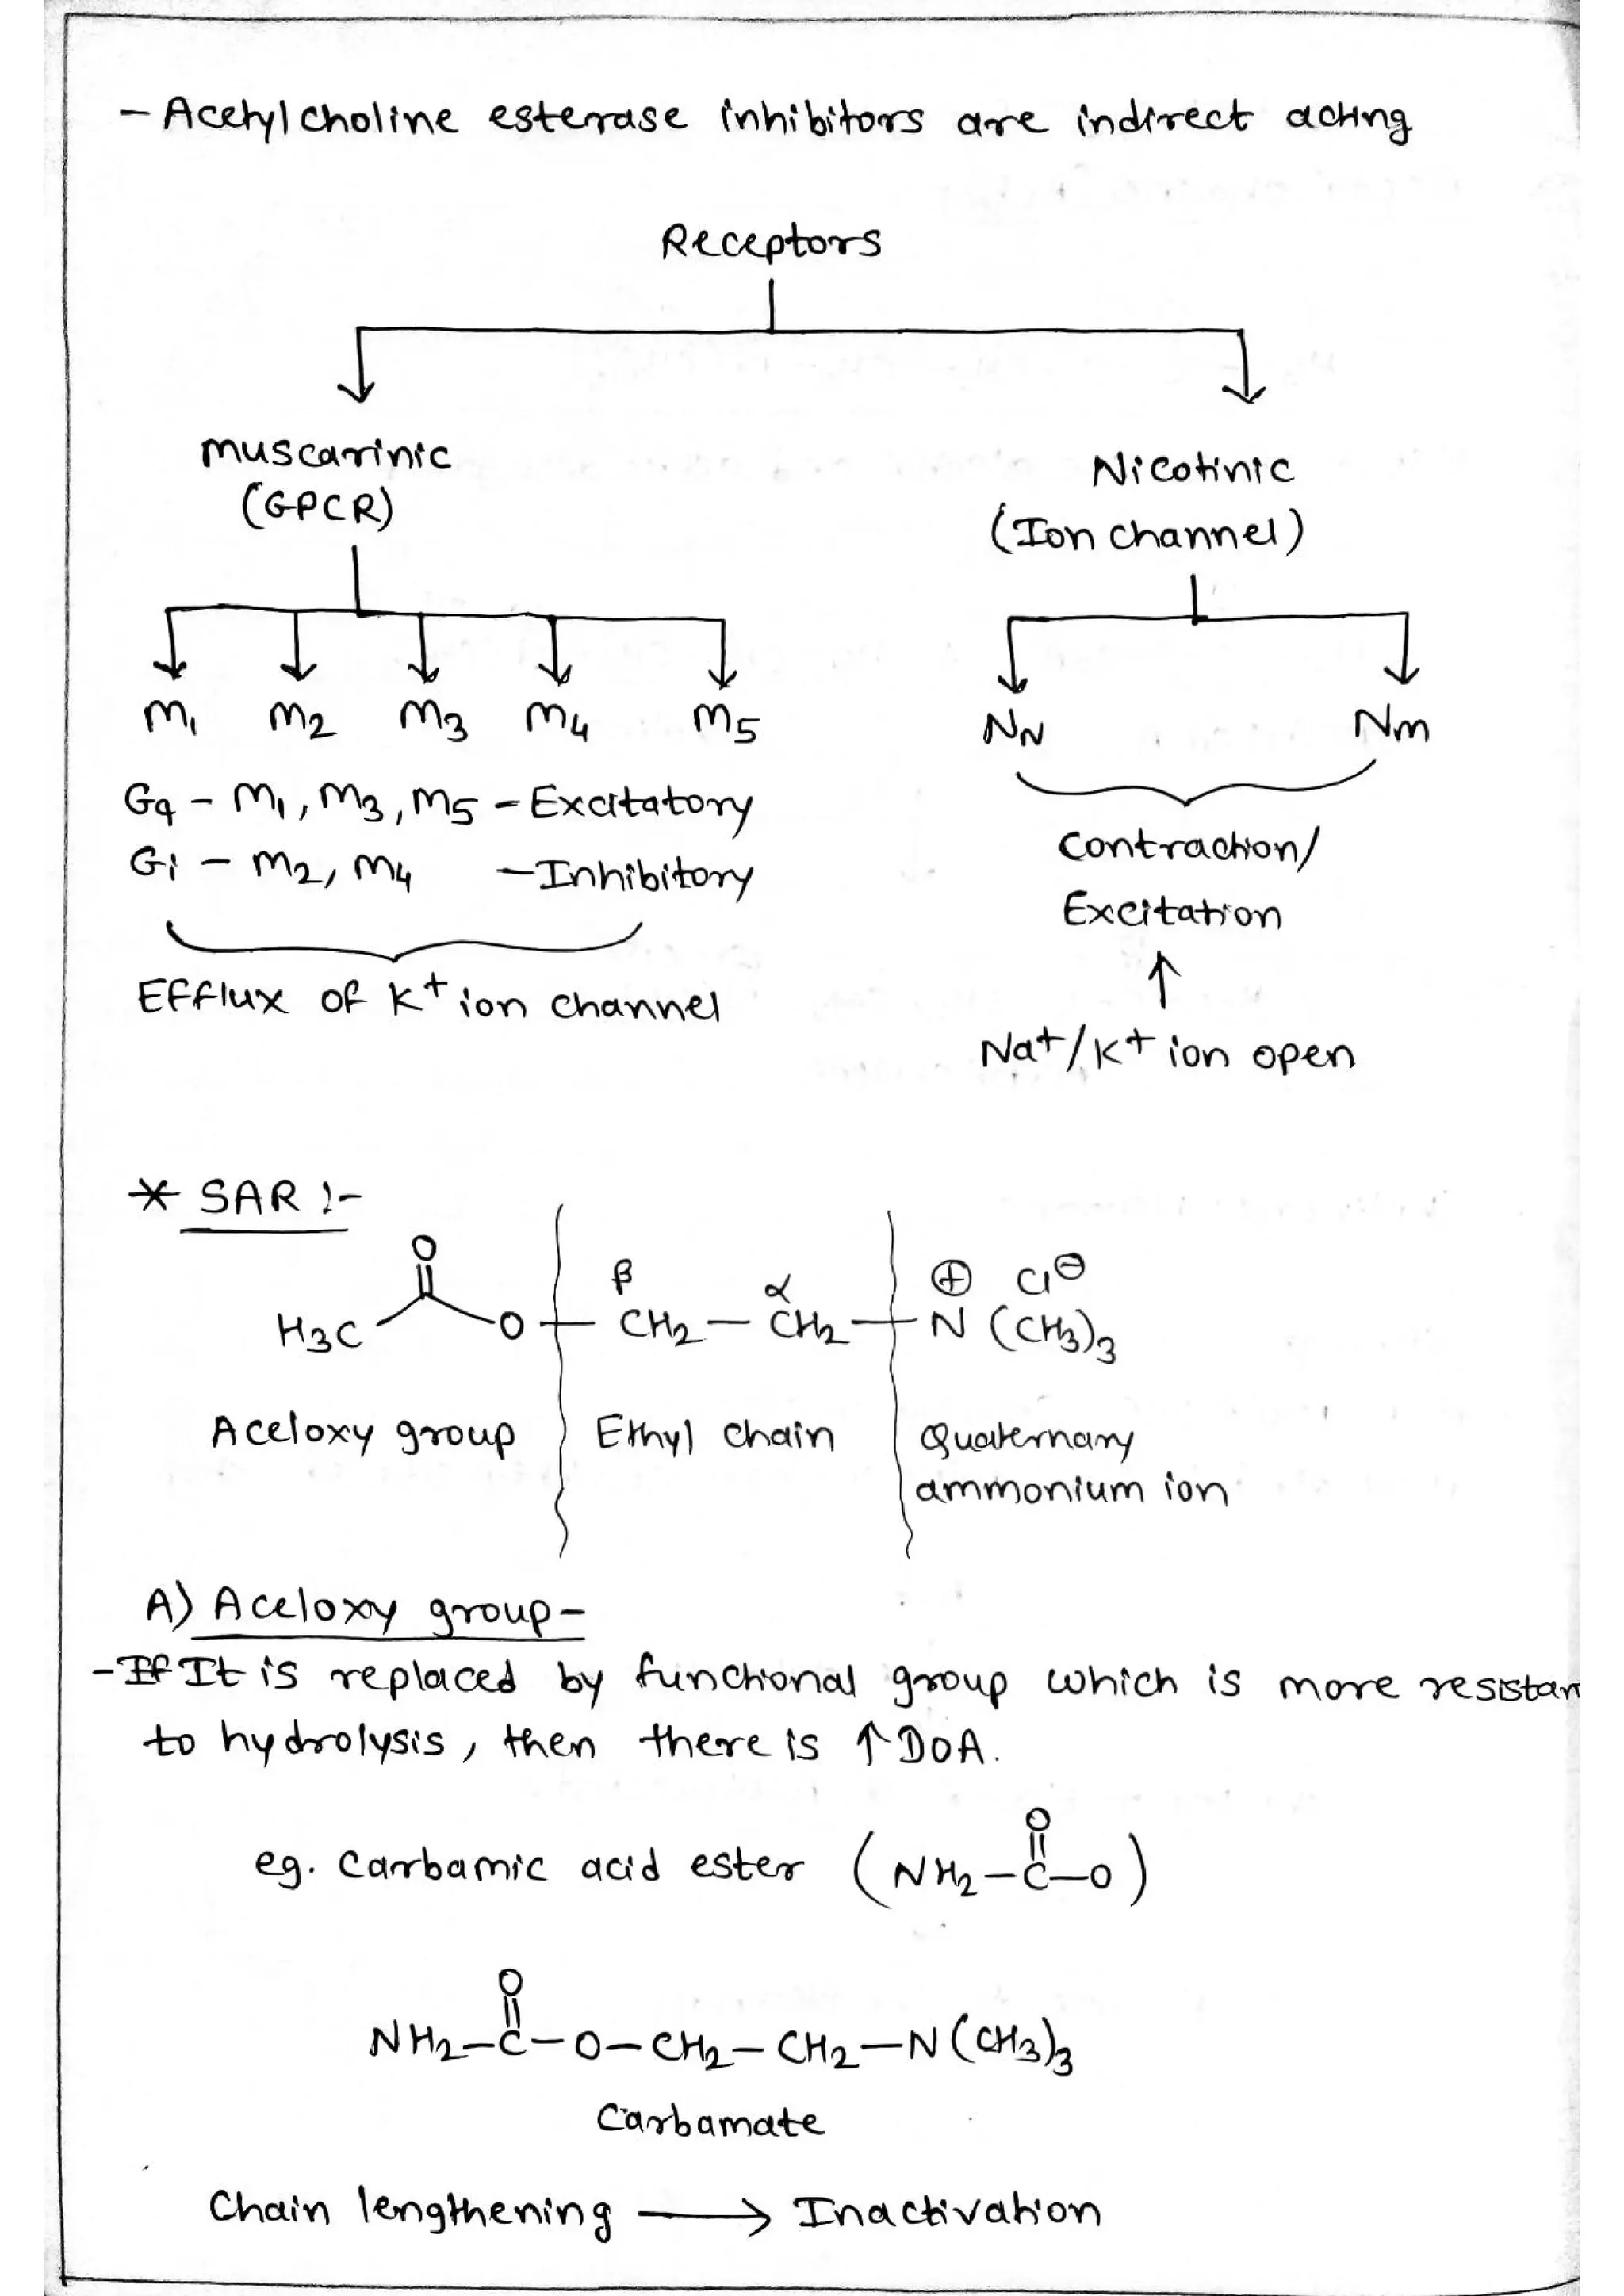 - Acetylcholine esterase inhibitors are indirect acting
Receptors
muscarinic
(GPCR)
Nicotinic
(Ion channel)
M1 M2 M3 M4 M5
NN Nm
Gq - M1, M3, M5 - Excitatory
Gi - M2, M4 - Inhibitory
Efflux of K+ ion channel
Contraction/
Excitation
↑
Na+/K+ ion open
* SAR :-
O
β α ⊕ Cl⊖
H3C O CH2 - CH2 N (CH3)3
Aceloxy group Ethyl chain Quaternary
ammonium ion
A) Aceloxy group -
- If It is replaced by functional group which is more resistan
to hydrolysis, then there is ↑ DOA.
O
eg. Carbamic acid ester (NH2-C-O)
O
NH2-C-O-CH2-CH2-N(CH3)3
Carbamate
Chain lengthening → Inactivation